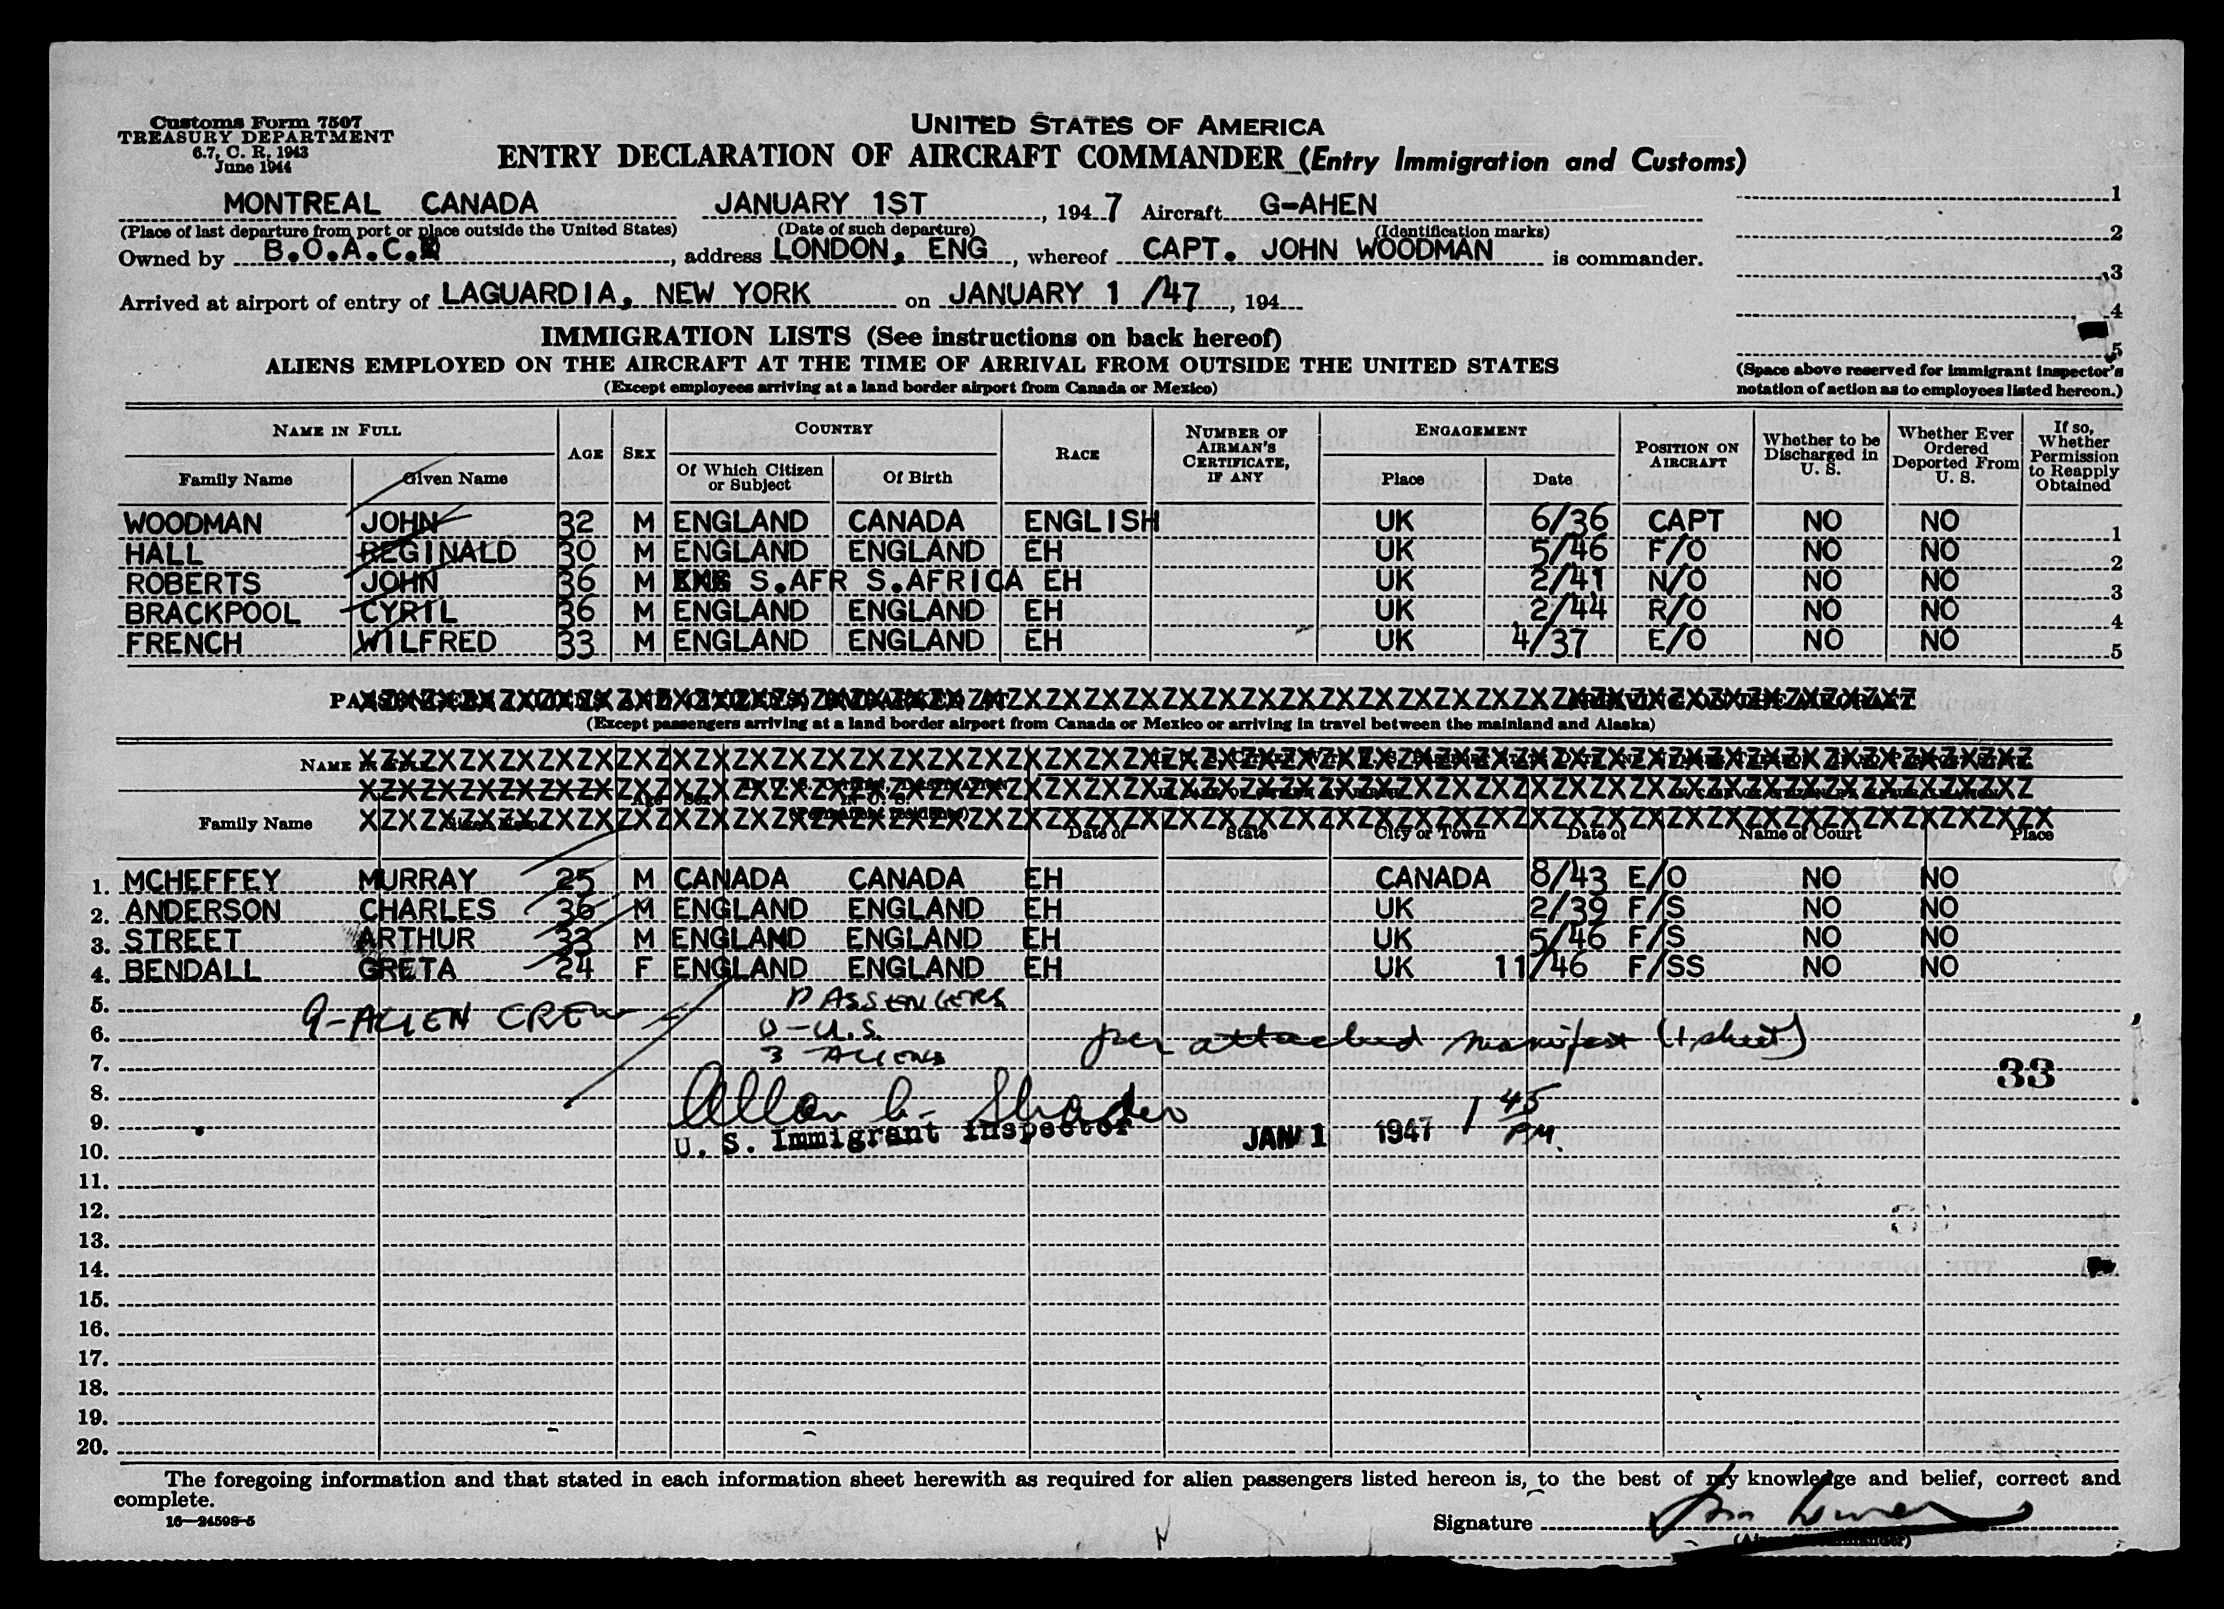 Customs Form 7507
TREASURY DEPARTMENT
6.7, C. R. 1943
June 1944
UNITED STATES OF AMERICA
ENTRY DECLARATION OF AIRCRAFT COMMANDER (Entry Immigration and Customs)
MONTREAL CANADA JANUARY 1ST, 1947 Aircraft G-AHEN
(Place of last departure from port or place outside the United States) (Date of such departure) (Identification marks)
Owned by B.O.A.C., address LONDON, ENG, whereof CAPT. JOHN WOODMAN is commander.
Arrived at airport of entry of LAGUARDIA, NEW YORK on JANUARY 1 /47, 194
1
2
3
4
5
(Space above reserved for immigrant inspector's
notation of action as to employees listed hereon.)
IMMIGRATION LISTS (See instructions on back hereof)
ALIENS EMPLOYED ON THE AIRCRAFT AT THE TIME OF ARRIVAL FROM OUTSIDE THE UNITED STATES
(Except employees arriving at a land border airport from Canada or Mexico)
NAME IN FULL
Family Name Given Name
AGE
SEX
COUNTRY
Of Which Citizen or Subject
Of Birth
RACE
NUMBER OF AIRMAN'S CERTIFICATE, IF ANY
ENGAGEMENT
Place Date
POSITION ON AIRCRAFT
Whether to be Discharged in U. S.
Whether Ever Ordered Deported From U. S.
If so, Whether Permission to Reapply Obtained
WOODMAN JOHN 32 M ENGLAND CANADA ENGLISH UK 6/36 CAPT NO NO 1
HALL REGINALD 30 M ENGLAND ENGLAND EH UK 5/46 F/O NO NO 2
ROBERTS JOHN 36 M S.AFR S.AFRICA EH UK 2/41 N/O NO NO 3
BRACKPOOL CYRIL 36 M ENGLAND ENGLAND EH UK 2/44 R/O NO NO 4
FRENCH WILFRED 33 M ENGLAND ENGLAND EH UK 4/37 E/O NO NO 5
(Except passengers arriving at a land border airport from Canada or Mexico or arriving in travel between the mainland and Alaska)
NAME
Family Name Date of State City or Town Date of Name of Court Place
1. MCHEFFEY MURRAY 25 M CANADA CANADA EH CANADA 8/43 E/O NO NO
2. ANDERSON CHARLES 36 M ENGLAND ENGLAND EH UK 2/39 F/S NO NO
3. STREET ARTHUR 33 M ENGLAND ENGLAND EH UK 5/46 F/S NO NO
4. BENDALL GRETA 24 F ENGLAND ENGLAND EH UK 11/46 F/SS NO NO
5. PASSENGERS
6. 9-ALIEN CREW 0-U.S. per attached manifest (1 sheet)
7. 3 ALIENS 33
8.
9. U. S. Immigrant Inspector JAN 1 1947 1 45 PM.
10.
11.
12.
13.
14.
15.
16.
17.
18.
19.
20.
The foregoing information and that stated in each information sheet herewith as required for alien passengers listed hereon is, to the best of my knowledge and belief, correct and
complete.
16—24598-5
Signature